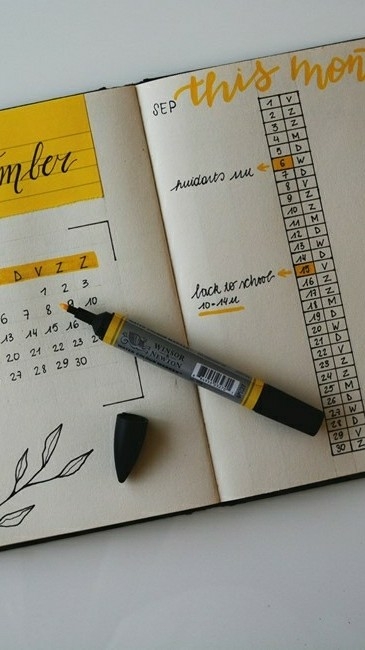 mber
D V Z Z
1 2 3
6 7 8 9 10
13 14 15 16
20 21 22 23
27 28 29 30
WINSOR
& NEWTON
SEP this mon
1 V
2 Z
3 Z
4 M
5 D
huidarts
6 W
7 D
8 V
9 Z
10 Z
11 M
12 D
13 W
14 D
back to school
10-14u
15 V
16 Z
17 Z
18 M
19 D
20 W
21 D
22 V
23 Z
24 Z
25 M
26 D
27 W
28 D
29 V
30 Z